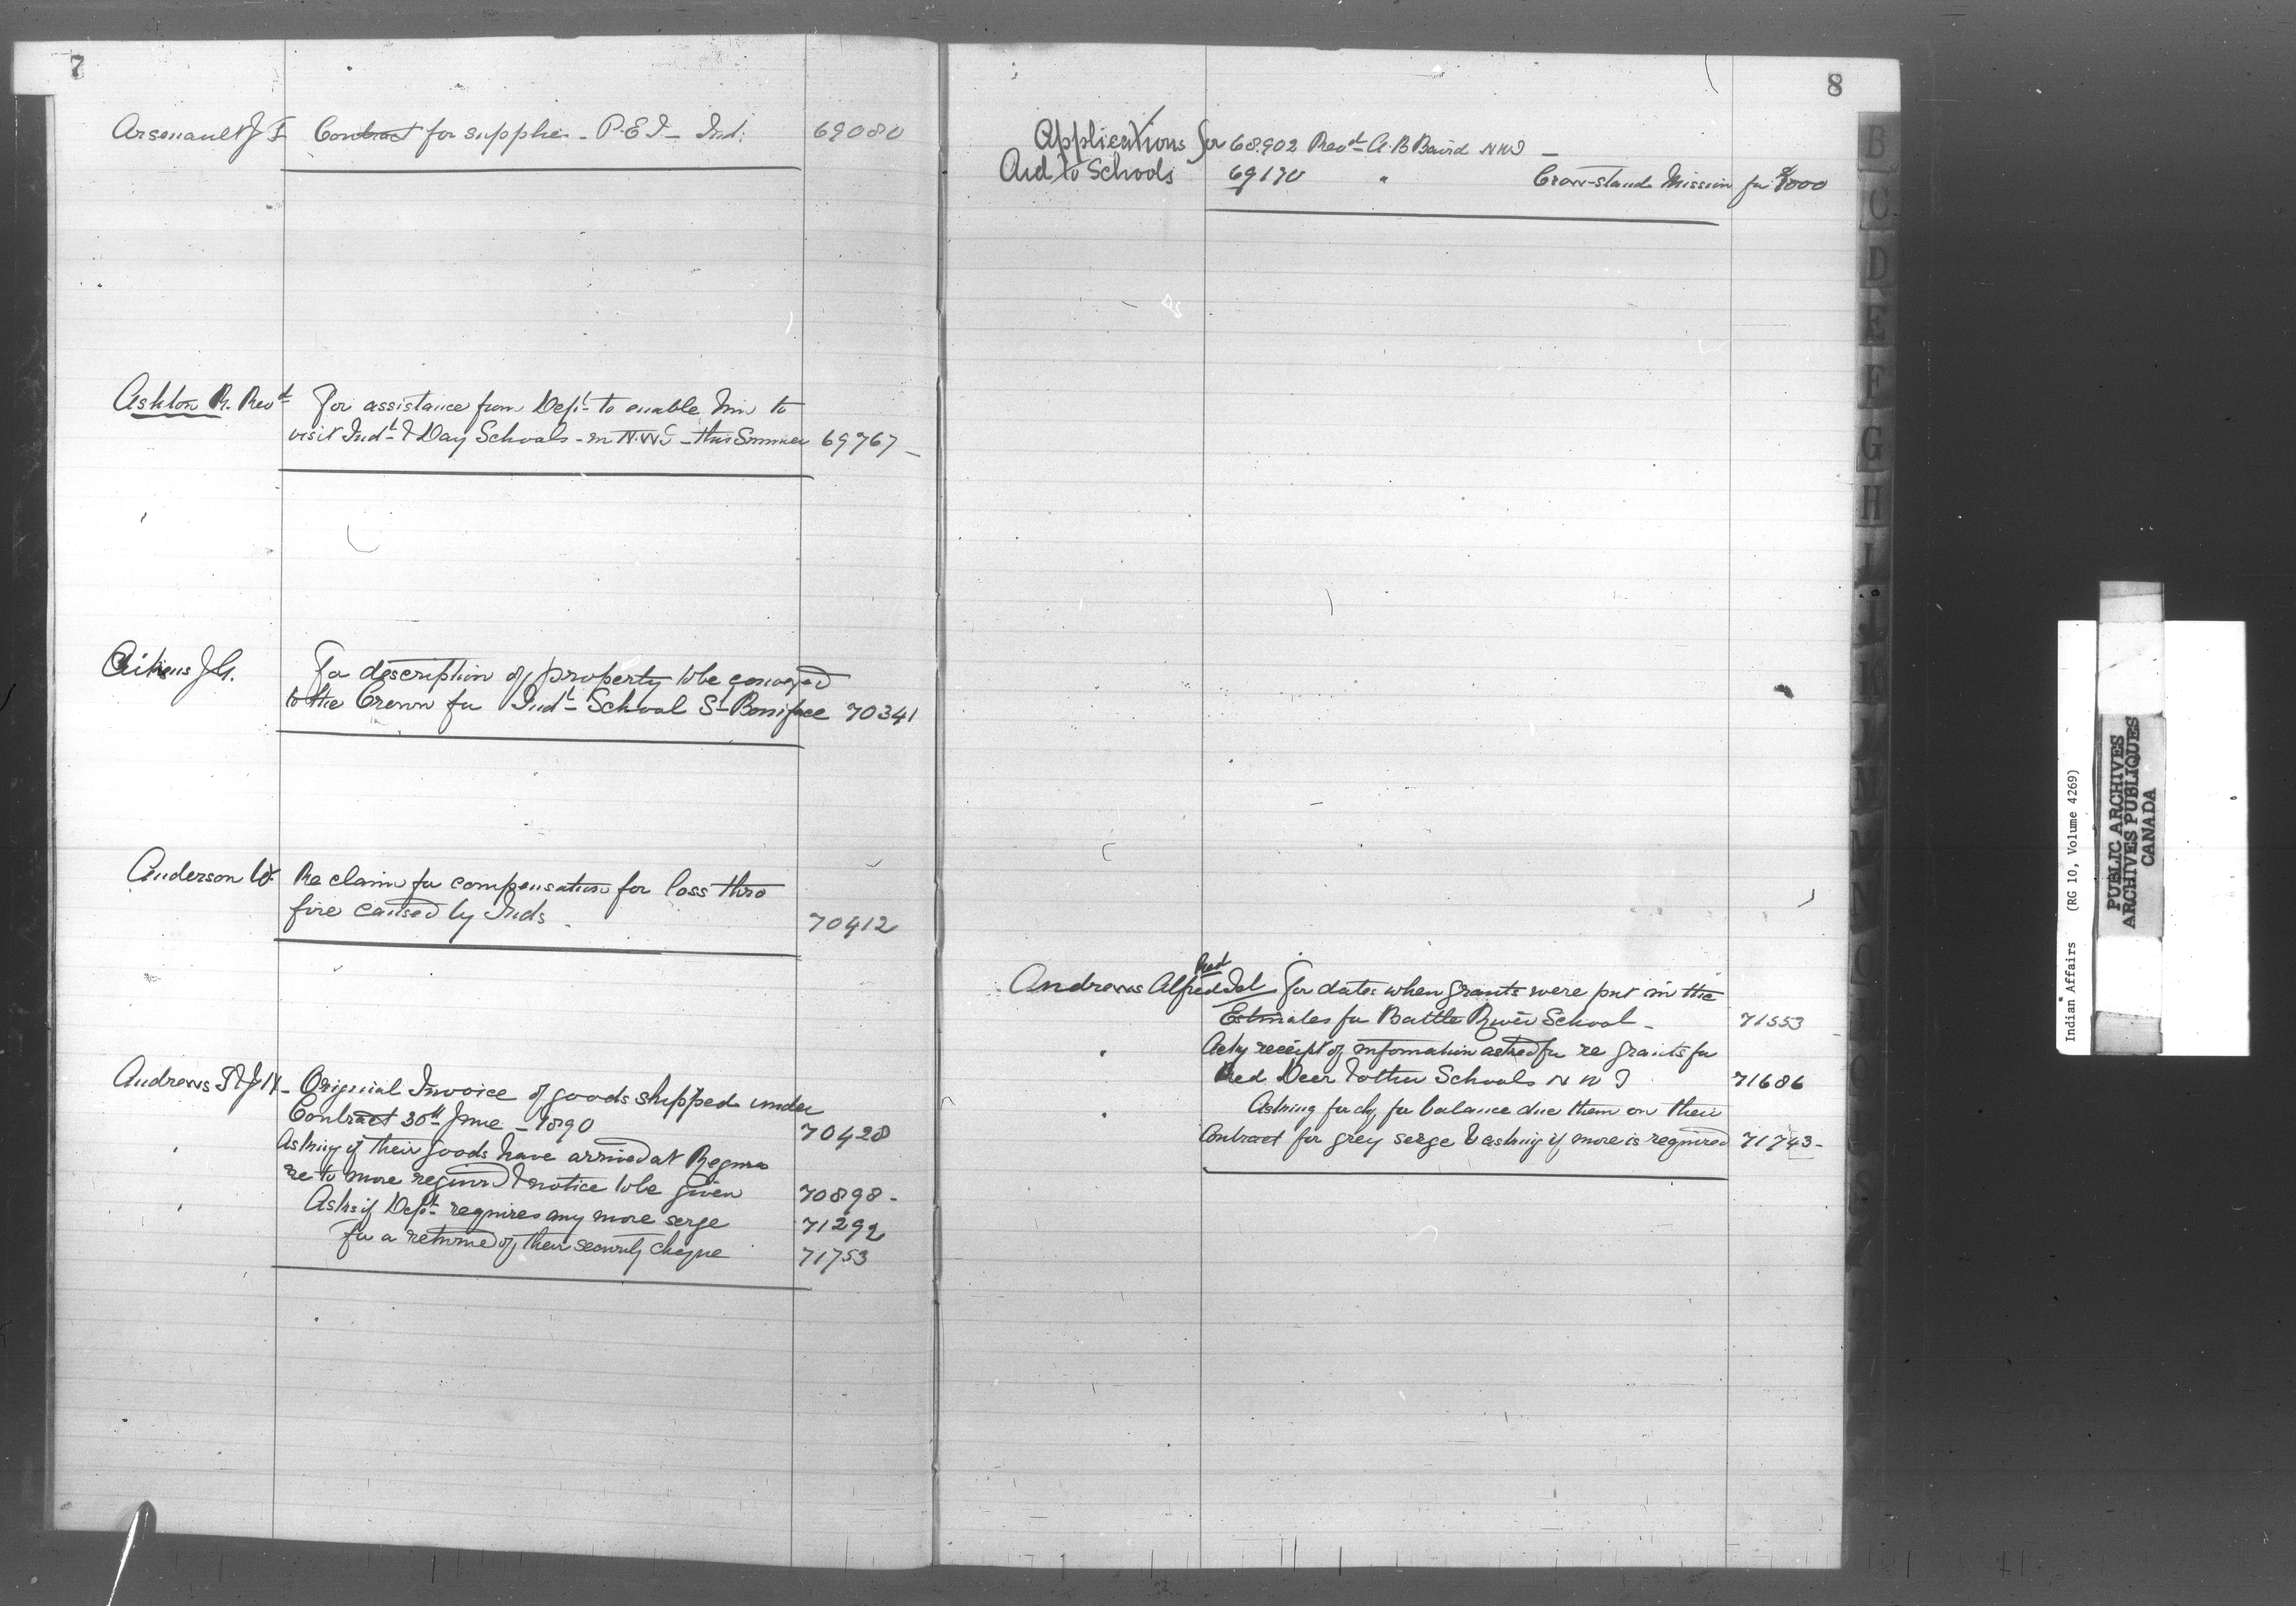 7
Arsenault J F Contract for supplies - P.E.I - Ind. 69080
Ashton R. Revd For assistance from Dept to enable him to
visit Indl & Day Schools - in N.W.T - this Summer 69767 -
Aikens J.G. For description of property to be conveyed
to the Crown for Indl School St Boniface 70341
Anderson W. Re claim for compensation for loss thro
fire caused by Inds 70412
Andrews & Original Invoice of goods shipped under
Contract 30th June - 1890 70428
" Asking if their goods have arrived at Regina
re to more required & notice to be given 70898 -
" Asks if Dept requires any more serge 71292
For a returned of their security cheque 71753
8
Applications for 68.902 Revd A.B Baird NWT -
Aid to Schools 69170 " Crow-stand Mission for $1000
Revd
Andrews Alfred For dates when grants were put in the
Estimates for Battle River School - 71553
" Ackg receipt of information asked for re grants for
Red Deer & other Schools N W T 71686
" Asking for chq for balance due them on their
Contract for grey serge & asking if more is required 71743 -
B
C
D
E
F
G
H
I
J
K
Indian Affairs (RG 10, Volume 4269)
PUBLIC ARCHIVES
ARCHIVES PUBLIQUES
CANADA